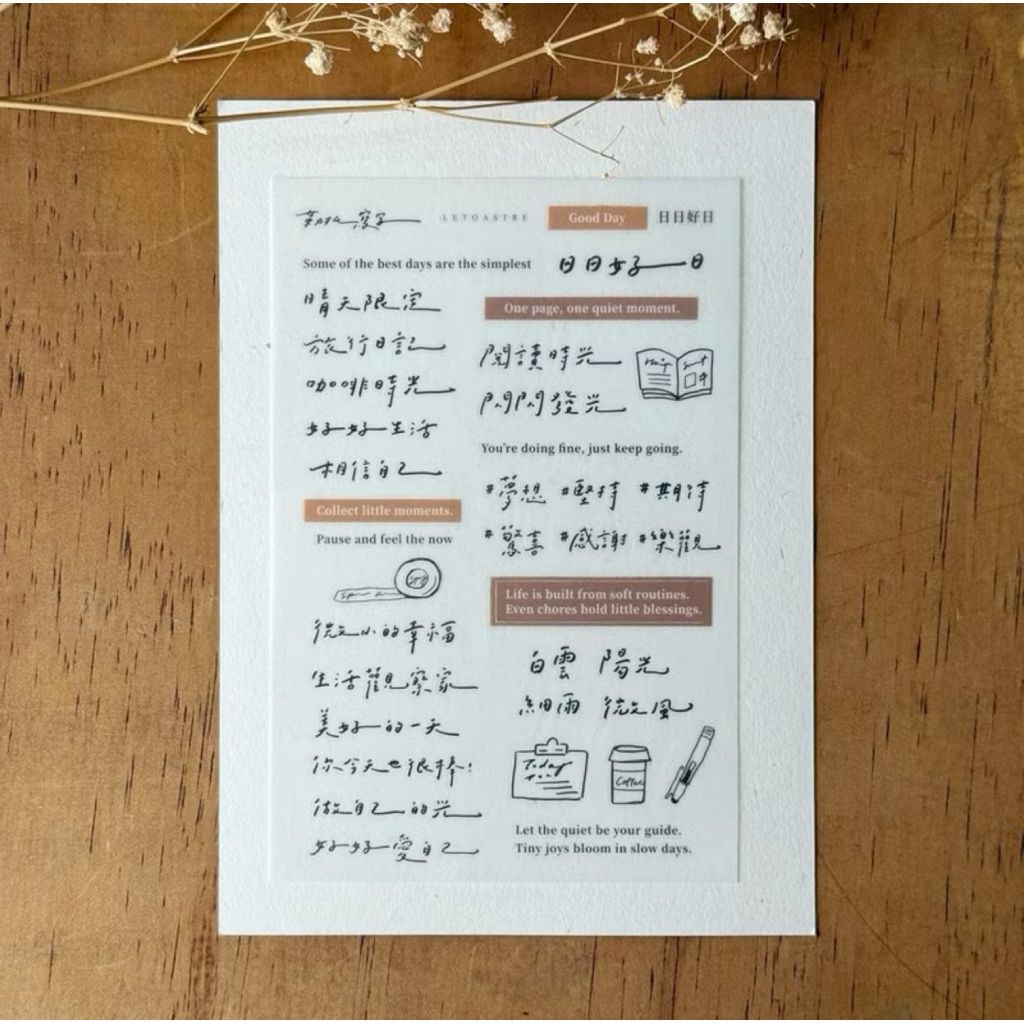 寫字 LETOASTRE Good Day 日日好日
Some of the best days are the simplest
日日好日
晴天限定
旅行日記
咖啡時光
好好生活
相信自己
Collect little moments.
Pause and feel the now
微小的幸福
生活觀察家
美好的一天
你今天也很棒!
做自己的光
好好愛自己
One page, one quiet moment.
閱讀時光
閃閃發光
You're doing fine, just keep going.
#夢想 #堅持 #期待
#驚喜 #感謝 #樂觀
Life is built from soft routines.
Even chores hold little blessings.
白雲 陽光
細雨 微風
Today
Coffee
Let the quiet be your guide.
Tiny joys bloom in slow days.